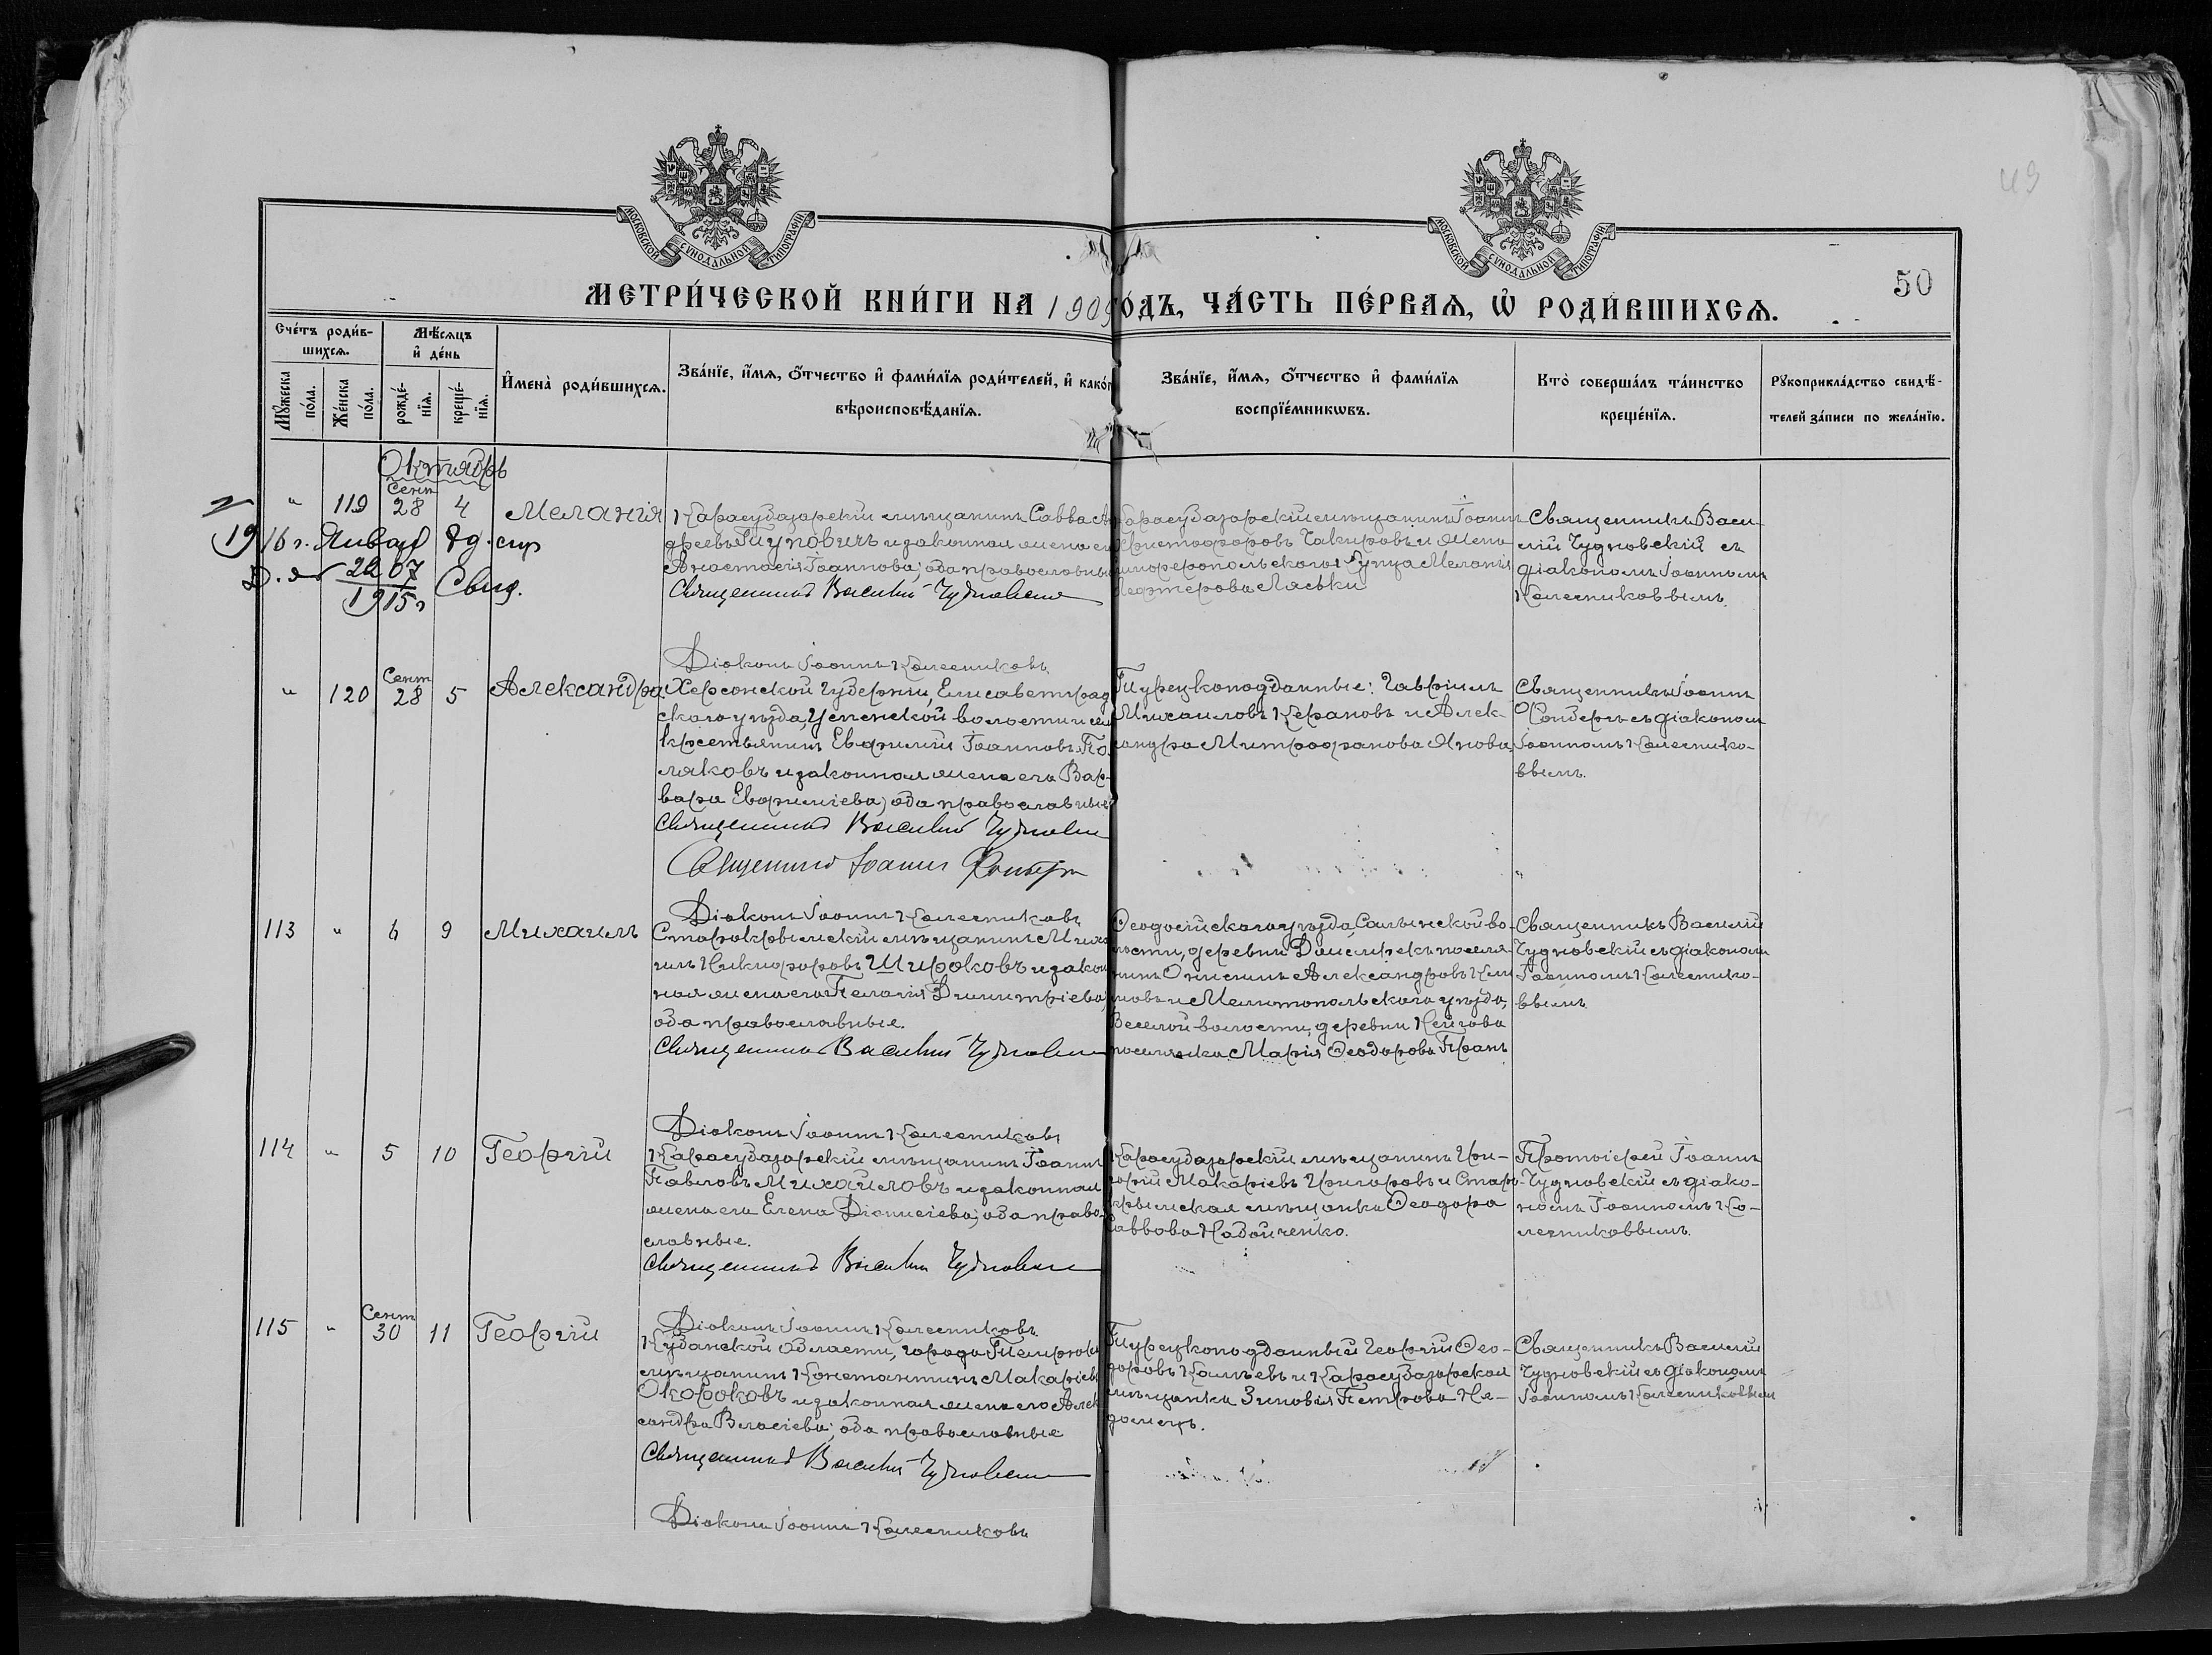 49
МОСКОВСКОЙ СѴНОДАЛЬНОЙ ТИПОГРАФІИ
МОСКОВСКОЙ СѴНОДАЛЬНОЙ ТИПОГРАФІИ
50
МЕТРИ́ЧЕСКОЙ КНИ́ГИ НА 1909 ГО́ДЪ, ЧА́СТЬ ПЕ́РВАѦ, Ѡ РОДИ́ВШИХСѦ.
Сче́тъ роди́в-
шихсѧ.
Мꙋ́жеска
по́ла.
Же́нска
по́ла.
Мѣ́сѧцъ
и҆ де́нь
рожде́-
нїѧ.
креще́-
нїѧ.
И҆мена̀ роди́вшихсѧ.
Зва́нїе, и҆́мѧ, ѻ҆́тчество и҆ фами́лїѧ роди́телей, и҆ како́г
вѣроисповѣ́данїѧ.
Зва́нїе, и҆́мѧ, ѻ҆́тчество и҆ фами́лїѧ
воспрїе́мникѡвъ.
Кто̀ соверша́лъ та́инство
креще́нїѧ.
Рꙋкоприкла́дство свидѣ́-
телей за́писи по жела́нїю.
Октябрь
" 119 Сент 28 4 Меланія
Карасубазарскій мѣщанинъ Савва Ан
дреевъ Тиуповичъ и законная жена ег
Анастасія Іоаннова; оба православны
Священникъ Василій Чудновскій
Діаконъ Іоаннъ Колесниковъ
Карасубазарскій мѣщанинъ Іоаннъ
Христофоровъ Чакировъ и жена
Симферопольскаго купца Меланія
Лефтерова Ласьки
Священникъ Васи-
лій Чудновскій съ
діакономъ Іоанномъ
Колесниковымъ.
1916 г. Январ
2207
1915 г Свид.
" 120 Сент 28 5 Александра
Херсонской губерніи, Елисаветград
скаго уѣзда, Успенской волости и села
крестьянинъ Евфимій Іоанновъ По
ляковъ и законная жена его Вар-
вара Евфиміева; оба православные
Священникъ Василій Чудновскій
Священникъ Іоаннъ
Діаконъ Іоаннъ Колесниковъ
Турецкоподданные: Гавріилъ
Михаиловъ Керановъ и Алек-
сандра Митрофанова Янова
Священникъ Іоаннъ
съ діакономъ
Іоанномъ Колеснико-
вымъ.
113 " 6 9 Михаилъ
Старокрымскій мѣщанинъ Миха
илъ Никифоровъ Широковъ и закон
ная жена его Пелагія Димитріева;
оба православные.
Священникъ Василій Чудновскій
Діаконъ Іоаннъ Колесниковъ
Ѳеодосійскаго уѣзда, Салынской во-
лости, деревни посели-
нинъ Онисимъ Александровъ Кли
мовъ и Мелитопольскаго уѣзда,
Веселой волости, деревни
поселянка Марія Ѳеодорова Пранъ
Священникъ Василій
Чудновскій съ діакономъ
Іоанномъ Колеснико-
вымъ
114 " 5 10 Георгій
Карасубазарскій мѣщанинъ Іоаннъ
Павловъ Михайловъ и законная
жена его Елена Діонисіева; оба право-
славные.
Священникъ Василій Чудновскій
Діаконъ Іоаннъ Колесниковъ
Карасубазарскій мѣщанинъ Гри-
горій Макаріевъ Григоровъ и Старо-
крымская мѣщанка Ѳеодора
Саввова Надойченко.
Протоіерей Іоаннъ
Чудновскій съ діако-
номъ Іоанномъ Ко-
лесниковымъ.
115 " Сент 30 11 Георгій
Кубанской области, города Темрюка
мѣщанинъ Константинъ Макаріевъ
Окороковъ и законная жена его Алек
сандра Власіева; оба православные
Священникъ Василій Чудновскій
Діаконъ Іоаннъ Колесниковъ
Турецкоподданный Георгій Ѳео-
доровъ Калѣевъ и Карасубазарская
мѣщанка Зиновія Петрова Не-
домецъ.
Священникъ Василій
Чудновскій съ діакономъ
Іоанномъ Колесниковымъ